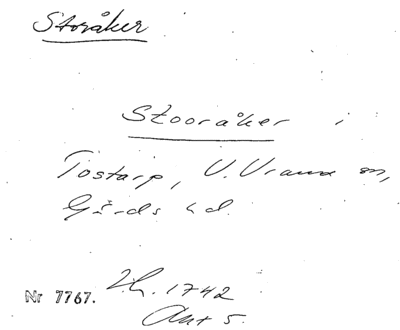 Storåker
Stooråker i
Tostarp, V. Vram sn,
Gärds hd.
Nr 7767. LR. 1742
Akt 5.